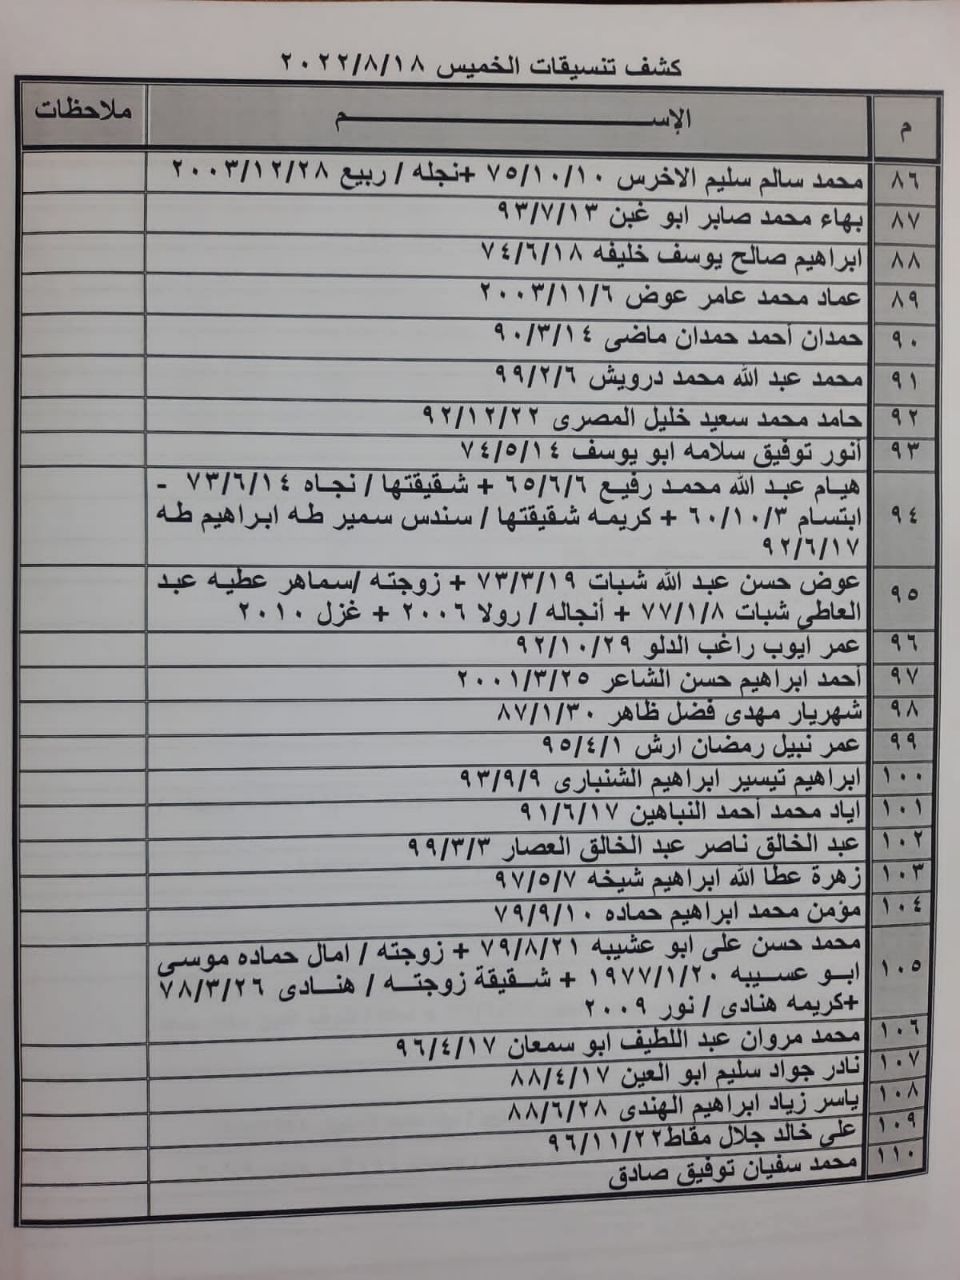 كشف تنسيقات الخميس ٢٠٢٢/٨/١٨
م الإســـــــم ملاحظات
٨٦ محمد سالم سليم الاخرس ٧٥/١٠/١٠ +نجله / ربيع ٢٠٠٣/١٢/٢٨
٨٧ بهاء محمد صابر ابو غبن ٩٣/٧/١٣
٨٨ ابراهيم صالح يوسف خليفه ٧٤/٦/١٨
٨٩ عماد محمد عامر عوض ٢٠٠٣/١١/٦
٩٠ حمدان أحمد حمدان ماضى ٩٠/٣/١٤
٩١ محمد عبد الله محمد درويش ٩٩/٢/٦
٩٢ حامد محمد سعيد خليل المصرى ٩٢/١٢/٢٢
٩٣ أنور توفيق سلامه ابو يوسف ٧٤/٥/١٤
٩٤ هيام عبد الله محمد رفيع ٦٥/٦/٦ + شقيقتها / نجاه ٧٣/٦/١٤ -
ابتسام ٦٠/١٠/٣ + كريمه شقيقتها / سندس سمير طه ابراهيم طه
٩٢/٦/١٧
٩٥ عوض حسن عبد الله شبات ٧٣/٣/١٩ + زوجته /سماهر عطيه عبد
العاطي شبات ٧٧/١/٨ + أنجاله / رولا ٢٠٠٦ + غزل ٢٠١٠
٩٦ عمر ايوب راغب الدلو ٩٢/١٠/٢٩
٩٧ أحمد ابراهيم حسن الشاعر ٢٠٠١/٣/٢٥
٩٨ شهريار مهدى فضل ظاهر ٨٧/١/٣٠
٩٩ عمر نبيل رمضان ارش ٩٥/٤/١
١٠٠ ابراهيم تيسير ابراهيم الشنبارى ٩٣/٩/٩
١٠١ اياد محمد أحمد النباهين ٩١/٦/١٧
١٠٢ عبد الخالق ناصر عبد الخالق العصار ٩٩/٣/٣
١٠٣ زهرة عطا الله ابراهيم شيخه ٩٧/٥/٧
١٠٤ مؤمن محمد ابراهيم حماده ٧٩/٩/١٠
١٠٥ محمد حسن على ابو عشيبه ٧٩/٨/٢١ + زوجته / امال حماده موسى
ابو عسيبه ١٩٧٧/١/٢٠ + شقيقة زوجته / هنادى ٧٨/٣/٢٦
+كريمه هنادى / نور ٢٠٠٩
١٠٦ محمد مروان عبد اللطيف ابو سمعان ٩٦/٤/١٧
١٠٧ نادر جواد سليم ابو العين ٨٨/٤/١٧
١٠٨ ياسر زياد ابراهيم الهندى ٨٨/٦/٢٨
١٠٩ على خالد جلال مقاط٩٦/١١/٢٢
١١٠ محمد سفيان توفيق صادق